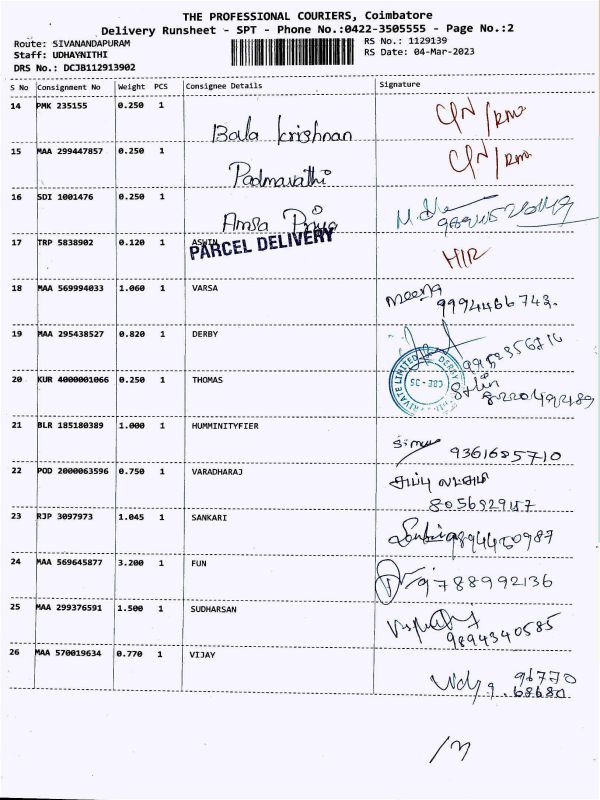 THE PROFESSIONAL COURIERS, Coimbatore
Delivery Runsheet - SPT - Phone No.:0422-3505555 - Page No.:2
Route: SIVANANDAPURAM
RS No.: 1129139
Staff: UDHAYNITHI
RS Date: 04-Mar-2023
DRS No.: DCJB112913902
S No Consignment No Weight PCS Consignee Details Signature
14 PMK 235155 0.250 1 Bala krishnan
15 MAA 299447857 0.250 1 Padmavathi
16 SDI 1001476 0.250 1 Amsa Priya
17 TRP 5838902 0.120 1 ASWIN
PARCEL DELIVERY
18 MAA 569994033 1.060 1 VARSA meena 9994466743.
19 MAA 295438527 0.820 1 DERBY
PRIVATE LIMITED DERBY
CBE - 35
20 KUR 4000001066 0.250 1 THOMAS
21 BLR 185180389 1.000 1 HUMMINITYFIER 9361685710
22 POD 2000063596 0.750 1 VARADHARAJ
23 RJP 3097973 1.045 1 SANKARI
24 MAA 569645877 3.200 1 FUN 9788992136
25 MAA 299376591 1.500 1 SUDHARSAN 9894340585
26 MAA 570019634 0.770 1 VIJAY 96770
68680